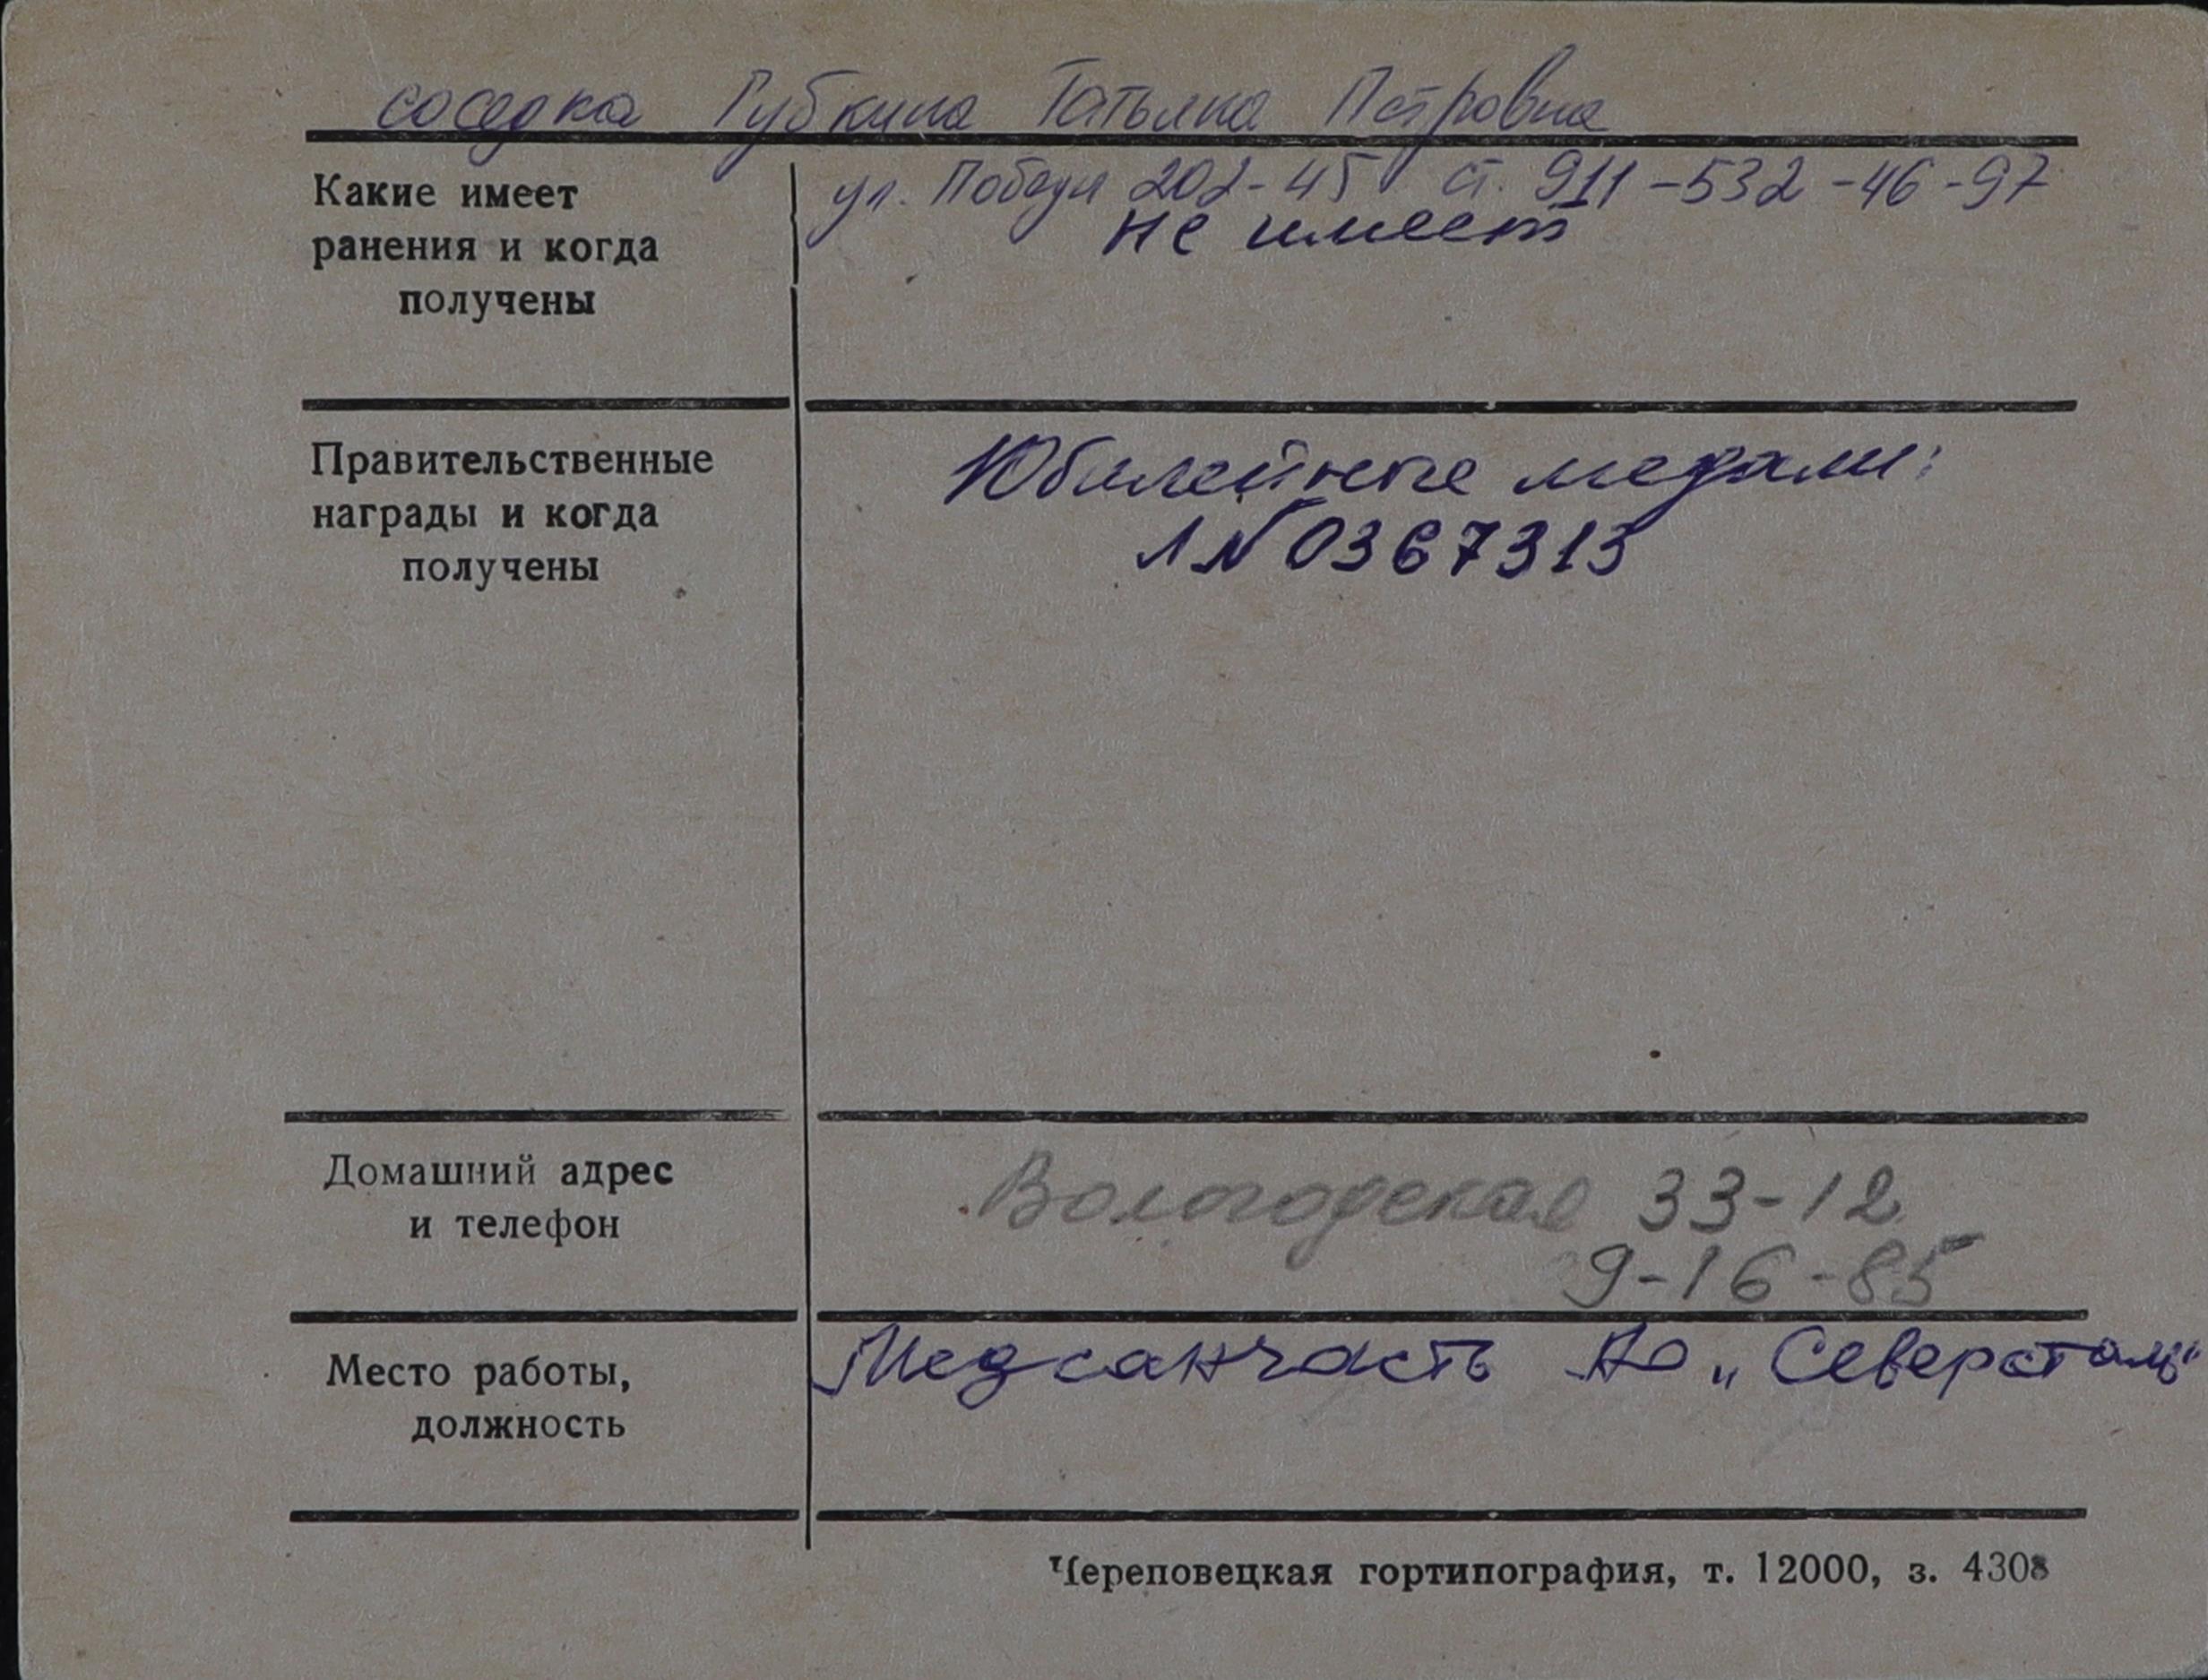 соседка Губкина Татьяна Петровна
ул. Победы 202-45 ст. 911-532-46-97
Какие имеет
ранения и когда
получены
не имеет
Правительственные
награды и когда
получены
Юбилейные медали:
Л№0367313
Домашний адрес
и телефон
Вологодская 33-12
9-16-85
Место работы,
должность
Медсанчасть АО „Северсталь"
Череповецкая гортипография, т. 12000, з. 4308